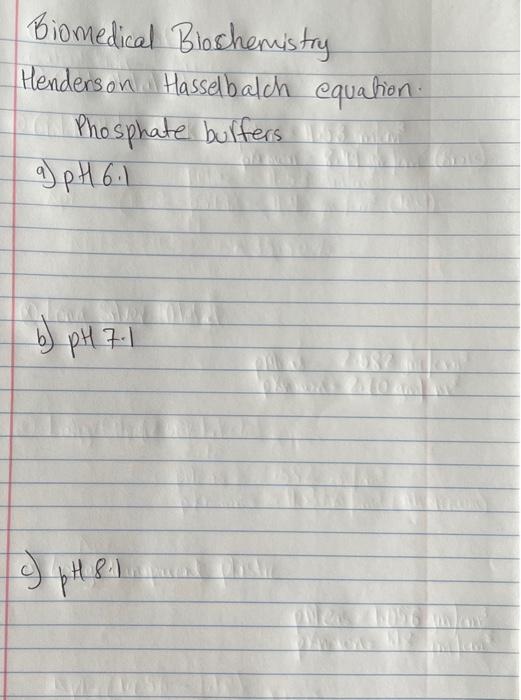 Biomedical Biochemistry
Henderson Hasselbalch equation.
Phosphate buffers
a) pH 6.1
b) pH 7.1
c) pH 8.1